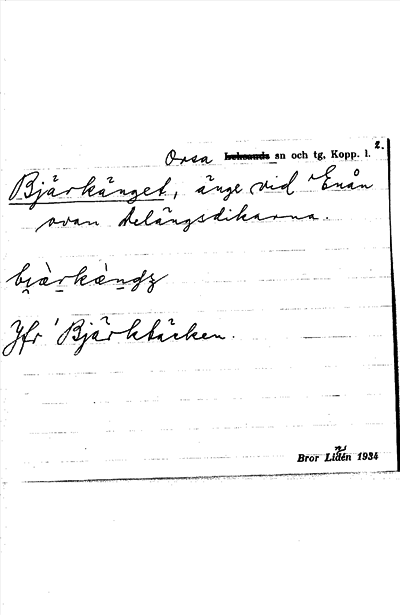 2.
Orsa Leksands sn och tg, Kopp. l.
Bjärkänget, änge vid Enån
ovan Delängsdikarna.
Jfr Bjärktäcken.
Bror Lidén 1934